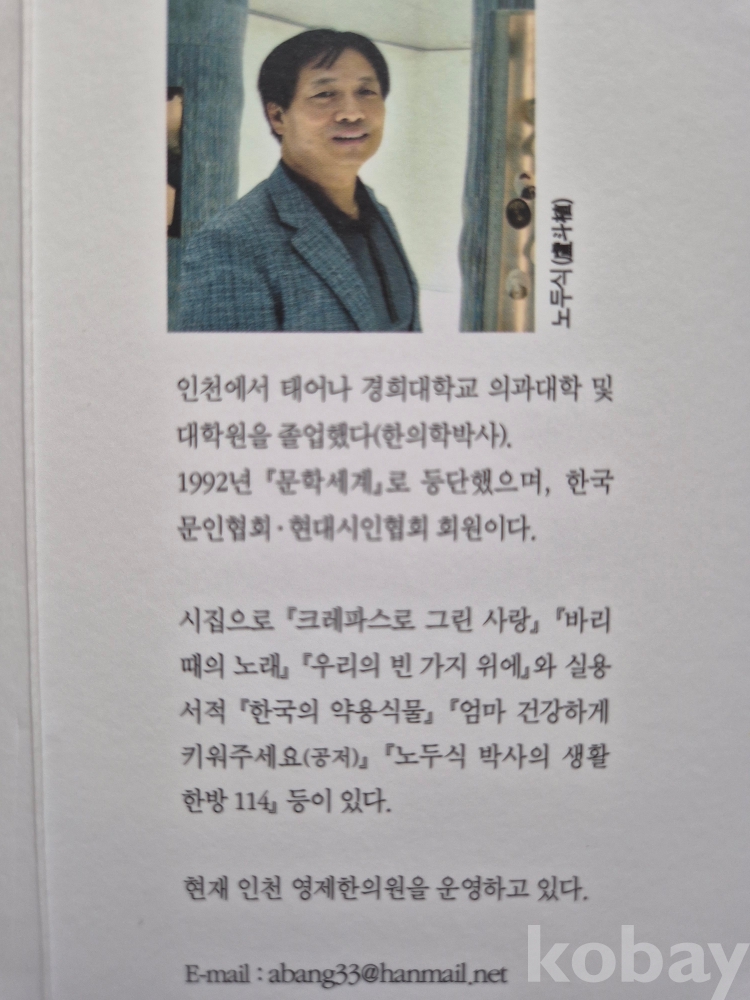 노두식(盧斗植)
인천에서 태어나 경희대학교 의과대학 및
대학원을 졸업했다(한의학박사).
1992년 『문학세계』로 등단했으며, 한국
문인협회·현대시인협회 회원이다.
시집으로 『크레파스로 그린 사랑』 『바리
때의 노래』 『우리의 빈 가지 위에』와 실용
서적 『한국의 약용식물』 『엄마 건강하게
키워주세요(공저)』 『노두식 박사의 생활
한방 114』 등이 있다.
현재 인천 영제한의원을 운영하고 있다.
E-mail : abang33@hanmail.net
kobay